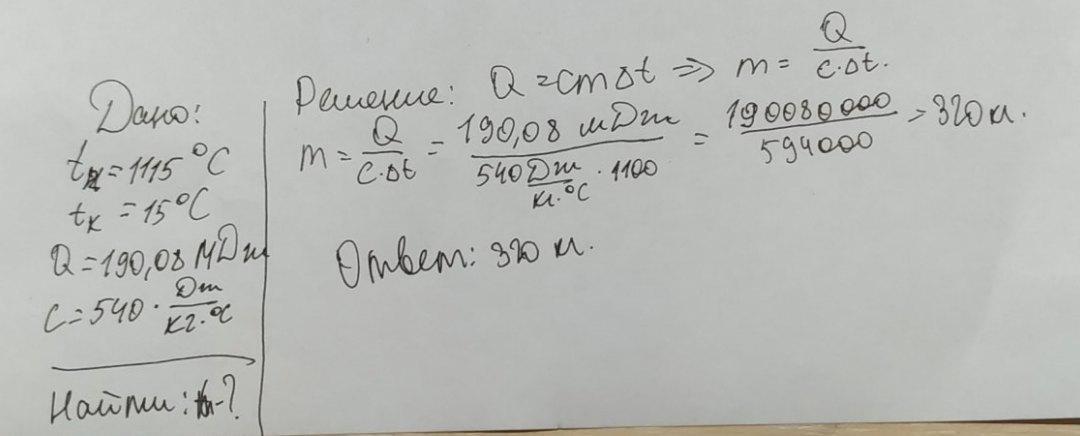 Дано:
tн = 1115 °C
tк = 15 °C
Q = 190,08 МДж
c = 540 · Дж/кг·°C
Найти: m - ?
Решение: Q = cmΔt => m = Q/c·Δt.
m = Q/c·Δt = 190,08 мДж/540 Дж/кг·°C · 1100 = 190080000/594000 = 320 кг.
Ответ: 320 кг.